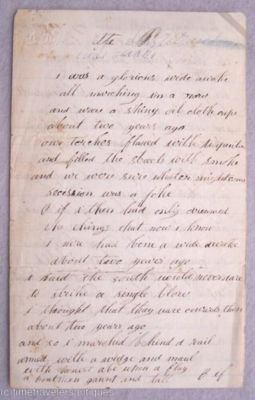 The
Wide Awake
I was a glorious wide awake
all marching in a row
and wore a shiny oil cloth cape
about two years ago
our torches flared with turpentine
and filled the streets with smoke
and we were sure whatever might come
secession was a joke
O if I then had only dreamed
the things that now I know
I ne'er had been a wide awake
about two years ago
I said the south would never dare
to strike a single blow
I thought that they were cowards then
about two years ago
and so I marched behind a rail
armed with a wedge and maul
with honest abe upon a flag
a boatman gaunt and tall
O if
timetravelersantiques